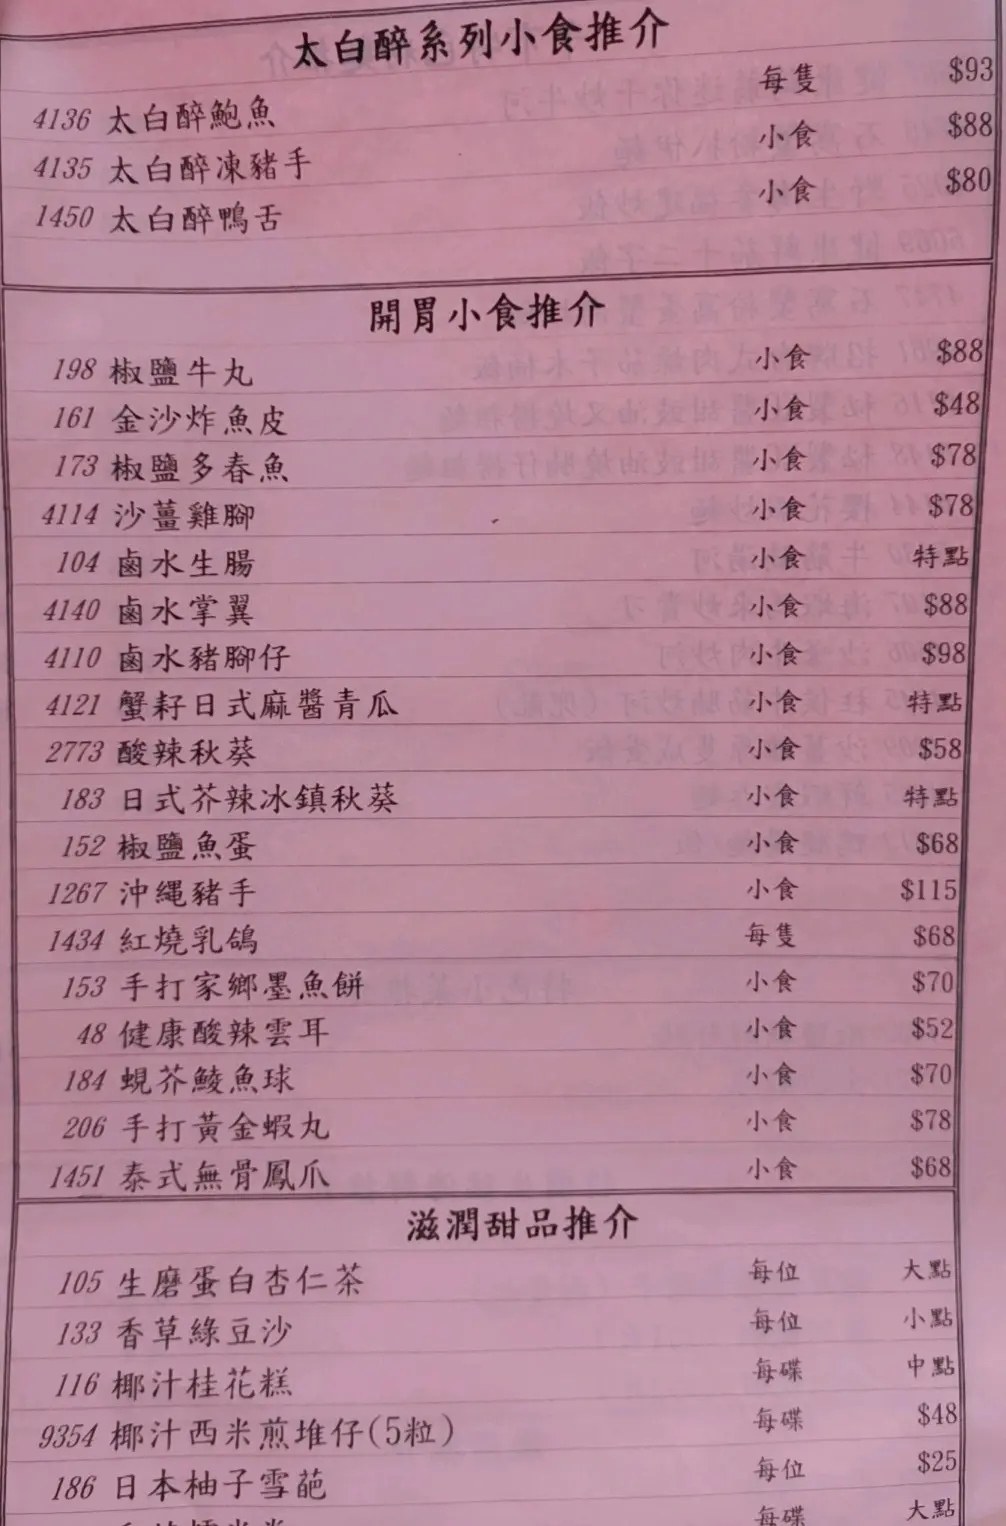 太白醉系列小食推介
4136 太白醉鮑魚 每隻 $93
4135 太白醉凍豬手 小食 $88
1450 太白醉鴨舌 小食 $80
開胃小食推介
198 椒鹽牛丸 小食 $88
161 金沙炸魚皮 小食 $48
173 椒鹽多春魚 小食 $78
4114 沙薑雞腳 小食 $78
104 鹵水生腸 小食 特點
4140 鹵水掌翼 小食 $88
4110 鹵水豬腳仔 小食 $98
4121 蟹籽日式麻醬青瓜 小食 特點
2773 酸辣秋葵 小食 $58
183 日式芥辣冰鎮秋葵 小食 特點
152 椒鹽魚蛋 小食 $68
1267 沖繩豬手 小食 $115
1434 紅燒乳鴿 每隻 $68
153 手打家鄉墨魚餅 小食 $70
48 健康酸辣雲耳 小食 $52
184 蜆芥鯪魚球 小食 $70
206 手打黃金蝦丸 小食 $78
1451 泰式無骨鳳爪 小食 $68
滋潤甜品推介
105 生磨蛋白杏仁茶 每位 大點
133 香草綠豆沙 每位 小點
116 椰汁桂花糕 每碟 中點
9354 椰汁西米煎堆仔(5粒) 每碟 $48
186 日本柚子雪葩 每位 $25
每碟 大點